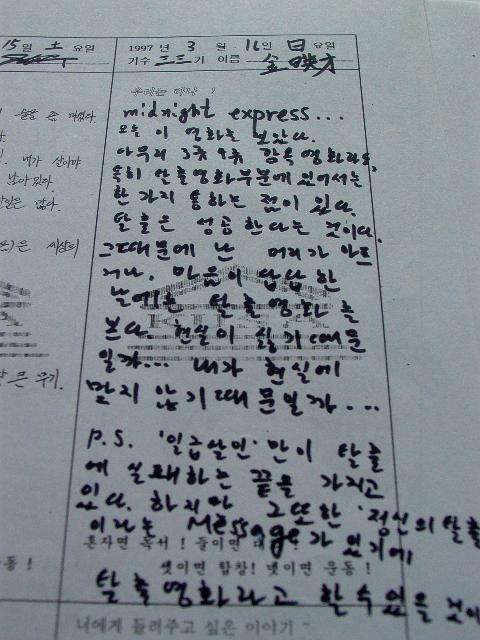 15일 土 요일
1997 년 3 월 16일 日 요일
기수 三三기 이름 金映才
우리는 하나 !
midnight express...
오늘 이 영화를 보았다.
아무리 3류 9류 감옥 영화라도,
특히 탈출영화부분에 있어서는
한 가지 통하는 점이 있다.
탈출은 성공한다는 것이다.
그때문에 난 머리가 아프
거나, 마음이 답답한
날에는 탈출영화를
본다. 현실이 싫기 때문
일까... 내가 현실에
맞지 않기 때문일까...
P.S. '일급살인'만이 탈출
에 실패하는 끝을 가지고
있다. 하지만 그또한 '정신의 탈출
이라는 Message가 있기에
혼자면 독서 ! 둘이면 대
셋이면 합창! 넷이면 운동 !
탈출영화라고 할수있을 것이
너에게 들려주고 싶은 이야기 ~
내가 살아야
남아있다.
많다.
은 세상의
큰 무기.
동 !